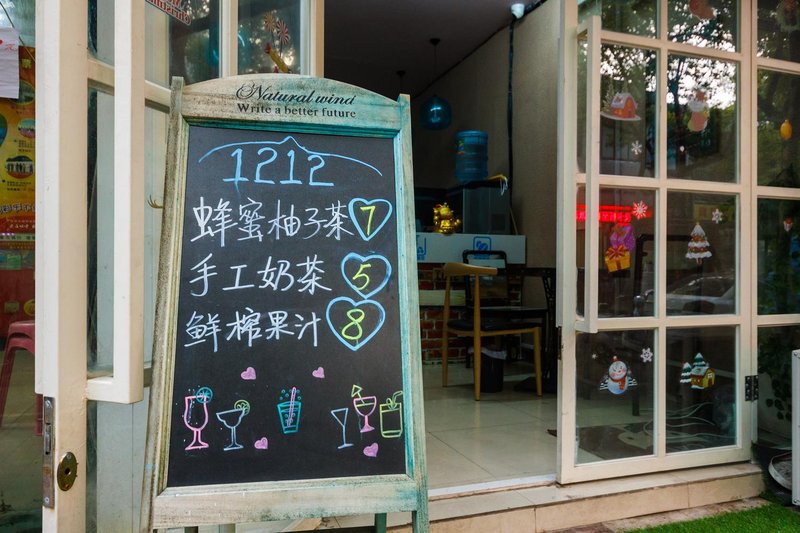 Natural wind
Write a better future
1212
蜂蜜柚子茶 7
手工奶茶 5
鲜榨果汁 8